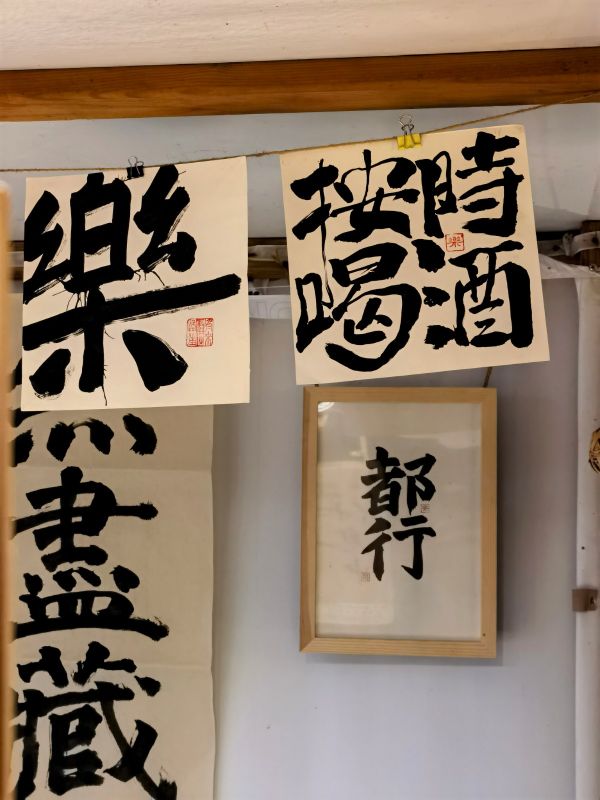 樂
按時
喝酒
盡
藏
都
行